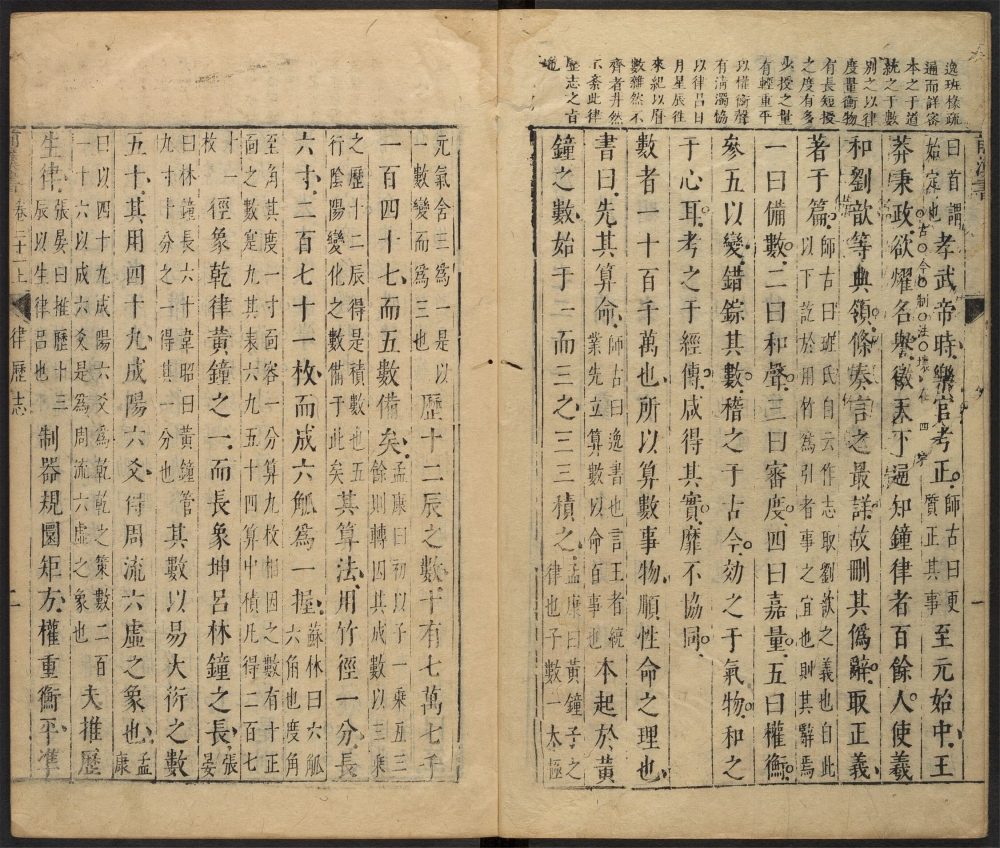 逸班椽疏
遍而詳密
本之于道
統之于數
别之以律
度量衡物
有長短授
之度有多
少授之量
有輕重平
以權衡聲
有清濁協
以律呂日
月星辰往
來紀以曆
數雜然不
齊者井然
不紊此律
歷志之首
也
前漢書
曰首謂始定也 孝武帝時樂官考正師古曰更質正其事 至元始中王
莽秉政欲耀名譽徵天下通知鐘律者百餘人使羲
和劉歆等典領條奏言之最詳故刪其僞辭取正義
著于篇師古曰班氏自云作志取劉歆之義也自此以下訖於用竹爲引者事之宜也則其辭焉
一曰備數二曰和聲三曰審度四曰嘉量五曰權衡
參五以變錯綜其數稽之于古今効之于氣物和之
于心耳考之于經傳咸得其實靡不協同
數者一十百千萬也所以算數事物順性命之理也
書曰先其算命師古曰逸書也言王者統業先立算數以命百事也 本起於黃
鐘之數始于一而三之三三積之孟康曰黃鐘子之律也子數一太極
元氣含三爲一是以一數變而爲三也 歷十二辰之數十有七萬七千
一百四十七而五數備矣孟康曰初以子一乘丑三餘則轉因其成數以三乘
之歷十二辰得是積數也五行陰陽變化之數備于此矣 其算法用竹徑一分長
六寸二百七十一枚而成六觚爲一握蘇林曰六觚六角也度角
至角其度一寸面容一分算九枚相因之數有十正面之數寔九其表六九五十四算中積凡得二百七
十一枚 徑象乾律黃鐘之一而長象坤呂林鐘之長張晏
曰林鐘長六寸韋昭曰黃鐘管九寸十分之一得其一分也 其數以易大衍之數
五十其用四十九成陽六爻得周流六虛之象也孟康
曰以四十九成陽六爻爲乾乾之策數二百一十六以成六爻是爲周流六虛之象也 夫推歷
生律張晏曰推歷十三辰以生律呂也 制器規圜矩方權重衡平準
卷二十一上
律歷志
二